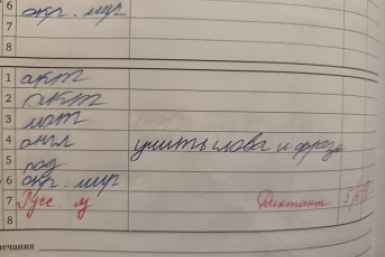 6 окр. мир
7
8
1 акт
2 акт
3 мат
4 англ учить слова и фразы
5
6 окр. мир
7 Русс. яз Диктант 5
8
мечания